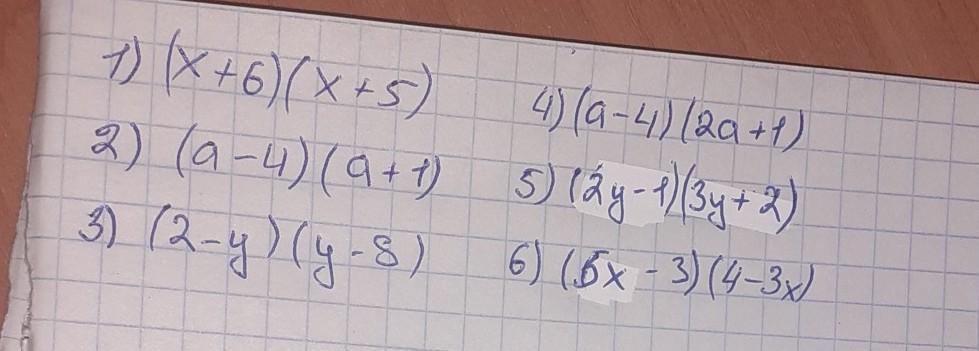 1) (x+6)(x+5)
2) (a-4)(a+1)
3) (2-y)(y-8)
4) (a-4)(2a+1)
5) (2y-1)(3y+2)
6) (5x-3)(4-3x)